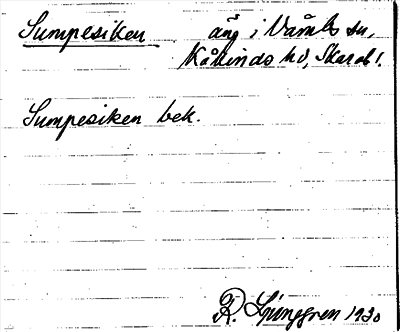 Sumpesiken äng i Vämbs sn,
Kåkinds hd, Skarab l.
Sumpesiken bek.
R. Ljunggren 1930